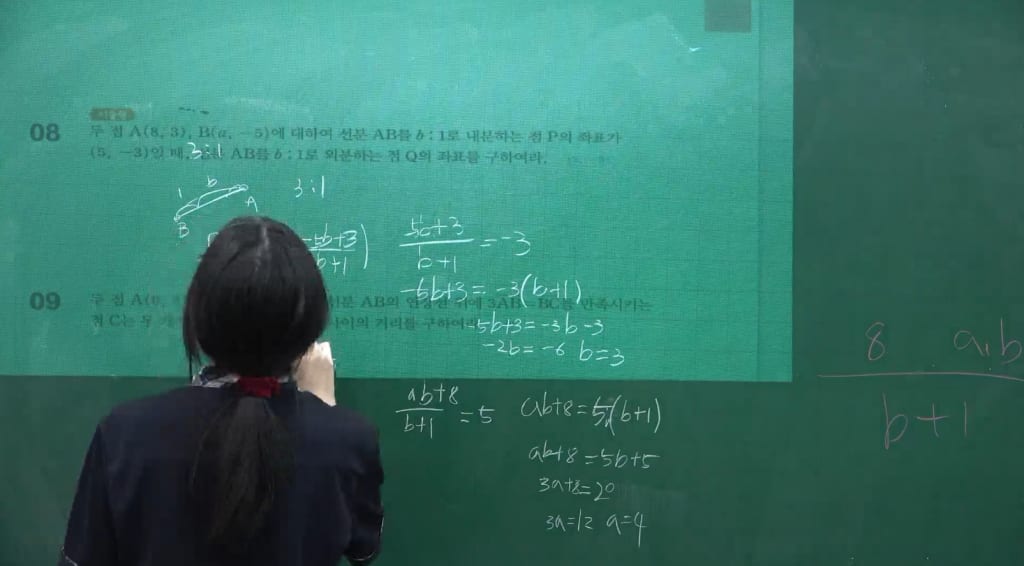 서술형
08 두 점 A(8, 3), B(a, -5)에 대하여 선분 AB를 b : 1로 내분하는 점 P의 좌표가
(5, -3)일 때, 선분 AB를 b : 1로 외분하는 점 Q의 좌표를 구하여라.
3:1
3:1
1 b
A
B
-5b+3
b+1 )
-5b+3
b+1 = -3
-5b+3 = -3(b+1)
-5b+3 = -3b-3
-2b = -6 b=3
09 두 점 A(0, 선분 AB의 연장선 위에 3AB=BC를 만족시키는
점 C는 두 사이의 거리를 구하여라
ab+8
b+1 = 5
ab+8 = 5(b+1)
ab+8 = 5b+5
3a+8=20
3a=12 a=4
8 a,b
b+1